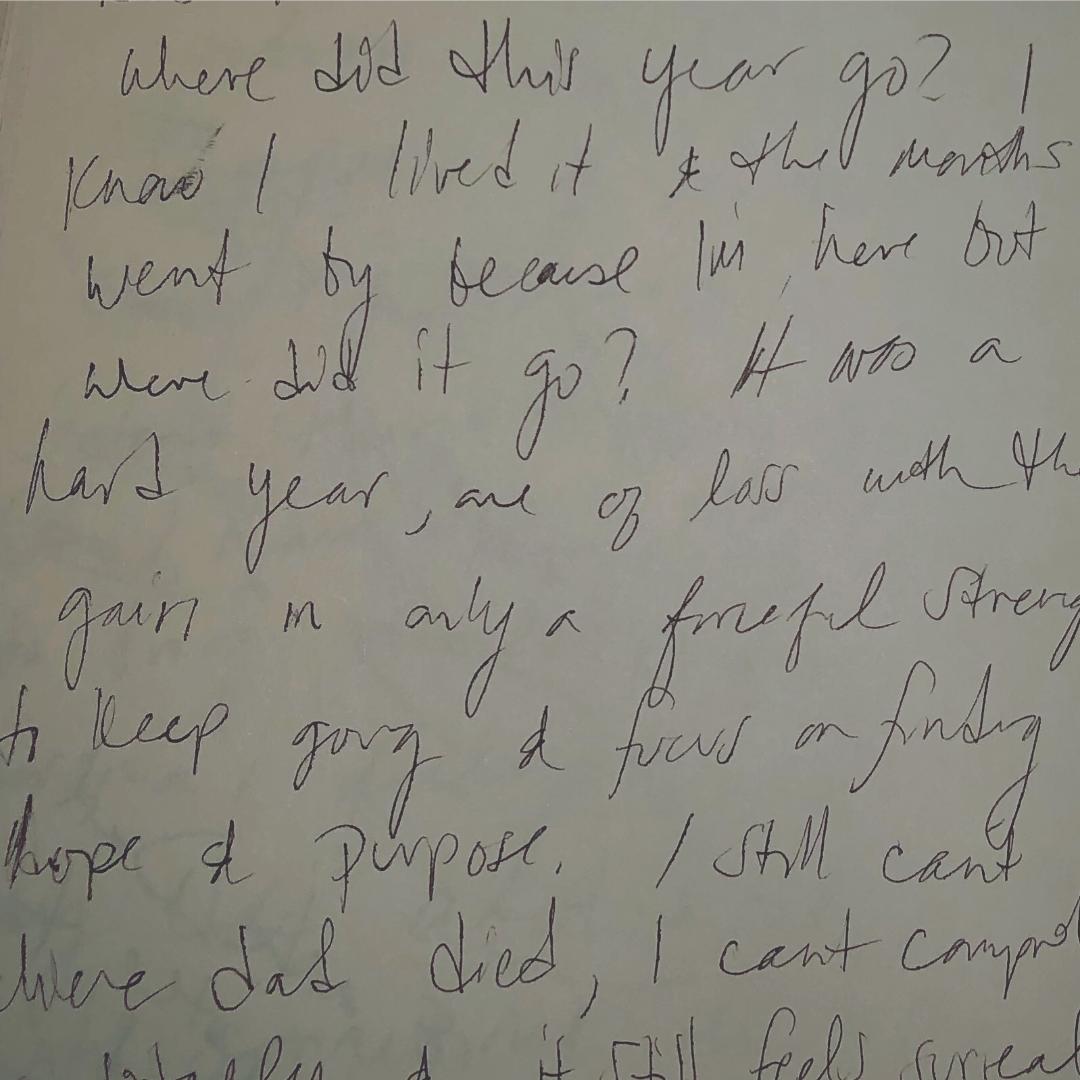 where did this year go? I
know I lived it & the months
went by because I'm here but
where did it go? It was a
hard year, one of loss with the
gain in only a forceful streng
to keep going & focus on finding
hope & purpose. I still can't
dad died, I can't
& it still feels surreal